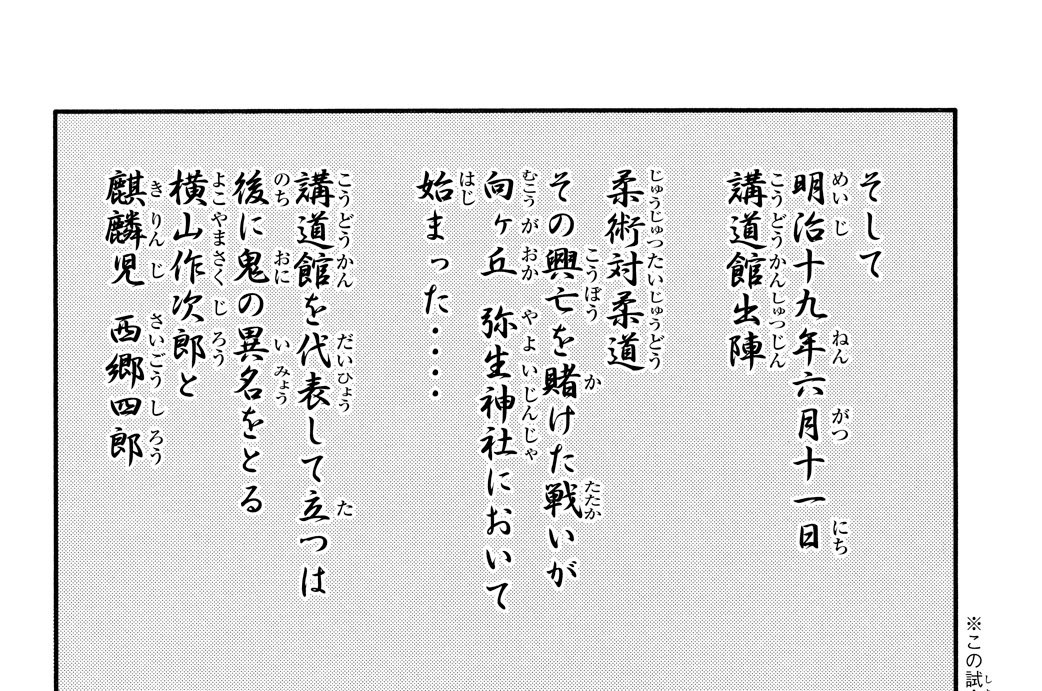 そして
明治十九年六月十一日
講道館出陣
柔術対柔道
その興亡を賭けた戦いが
向ヶ丘 弥生神社において
始まった・・・・
講道館を代表して立つは
後に鬼の異名をとる
横山作次郎と
麒麟児 西郷四郎
※この試